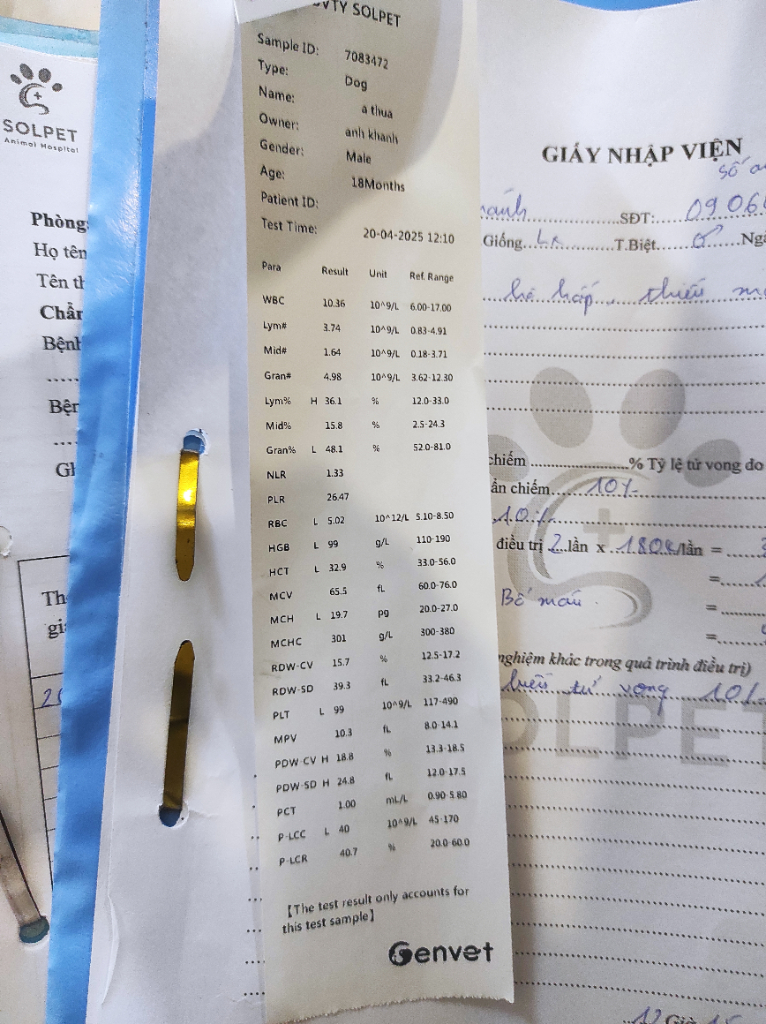 SOLPET
Animal Hospital
Phòng
Họ tên
Tên th
Chẩn
Bệnh
Bện
VTY SOLPET
Sample ID: 7083472
Type: Dog
Name: a thua
Owner: anh khanh
Gender: Male
Age: 18Months
Patient ID:
Test Time: 20-04-2025 12:10
Para Result Unit Ref. Range
WBC 10.36 10^9/L 6.00-17.00
Lym# 3.74 10^9/L 0.83-4.91
Mid# 1.64 10^9/L 0.18-3.71
Gran# 4.98 10^9/L 3.62-12.30
Lym% H 36.1 % 12.0-33.0
Mid% 15.8 % 2.5-24.3
Gran% L 48.1 % 52.0-81.0
NLR 1.33
PLR 26.47
RBC L 5.02 10^12/L 5.10-8.50
HGB L 99 g/L 110-190
HCT L 32.9 % 33.0-56.0
MCV 65.5 fL 60.0-76.0
MCH L 19.7 pg 20.0-27.0
MCHC 301 g/L 300-380
RDW-CV 15.7 % 12.5-17.2
RDW-SD 39.3 fL 33.2-46.3
PLT L 99 10^9/L 117-490
MPV 10.3 fL 8.0-14.1
PDW-CV H 18.8 % 13.3-18.5
PDW-SD H 24.8 fL 12.0-17.5
PCT 1.00 mL/L 0.90-5.80
P-LCC L 40 10^9/L 45-170
P-LCR 40.7 % 20.0-60.0
【The test result only accounts for
this test sample】
Genvet
GIẤY NHẬP VIỆN
SĐT: 0906
Giống T.Biệt ♂ Ng
hô hấp, thiếu m
chiếm % Tỷ lệ tử vong do
ẩn chiếm 10%
10%
điều trị 2 lần x 180k/lần =
=
Bổ máu =
=
nghiệm khác trong quá trình điều trị)
tử vong 10%
OLPET